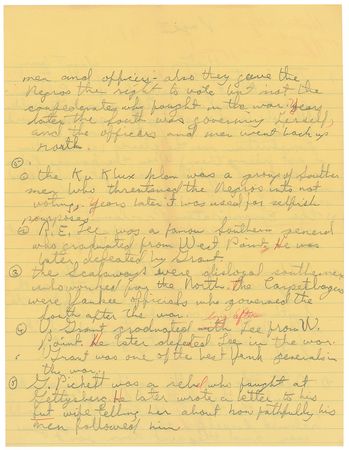 men and officers - also they gave the
Negros the right to vote but not the
confederates who fought in the war. Years
later the South was governing herself,
and the officers and men went back up
North.
⑤
① the Ku Klux Klan was a group of Southern
men who threatened the Negros into not
voting. Years later it was used for selfish
purposes.
② R. E. Lee was a famous Southern general
who graduated from West Point, He was
later defeated by Grant.
③ the Scalawags were disloyal southerners
who worked for the North. The Carpetbaggers
were Yankee officials who governed the
South after the war.
④ U. Grant graduated with Lee from W.
Point. He later defeated Lee in the war.
Grant was one of the best Yank generals in
the war.
⑤ G. Pickett was a reb who fought at
Gettysberg. He later wrote a letter to his
wife telling her about how faithfully his
men followed him